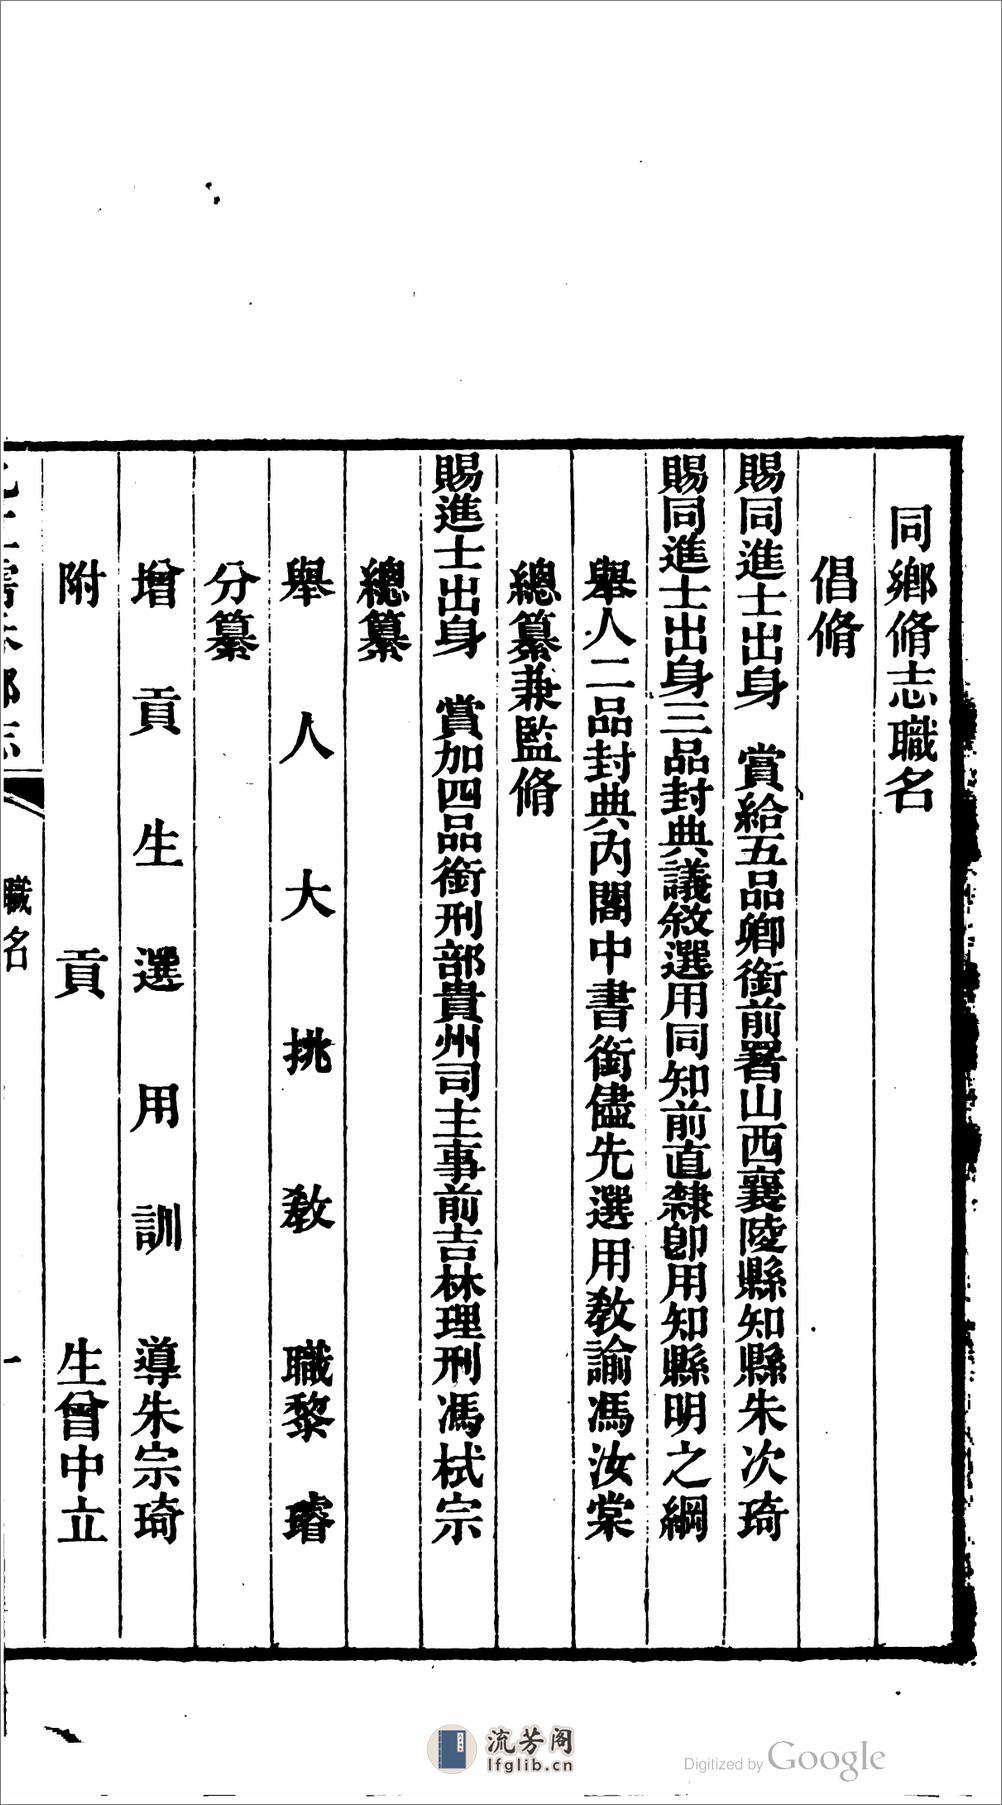 同鄉脩志職名
倡脩
賜同進士出身　賞給五品卿銜前署山西襄陵縣知縣朱次琦
賜同進士出身三品封典議敘選用同知前直隸卽用知縣明之綱
舉人二品封典內閣中書銜儘先選用敎諭馮汝棠
總纂兼監脩
賜進士出身　賞加四品銜刑部貴州司主事前吉林理刑馮栻宗
總纂
舉人大挑敎職黎璿
分纂
增貢生選用訓導朱宗琦
附貢生曾中立
鄉志
職名
一
流芳阁
lfglib.cn
Digitized by Google